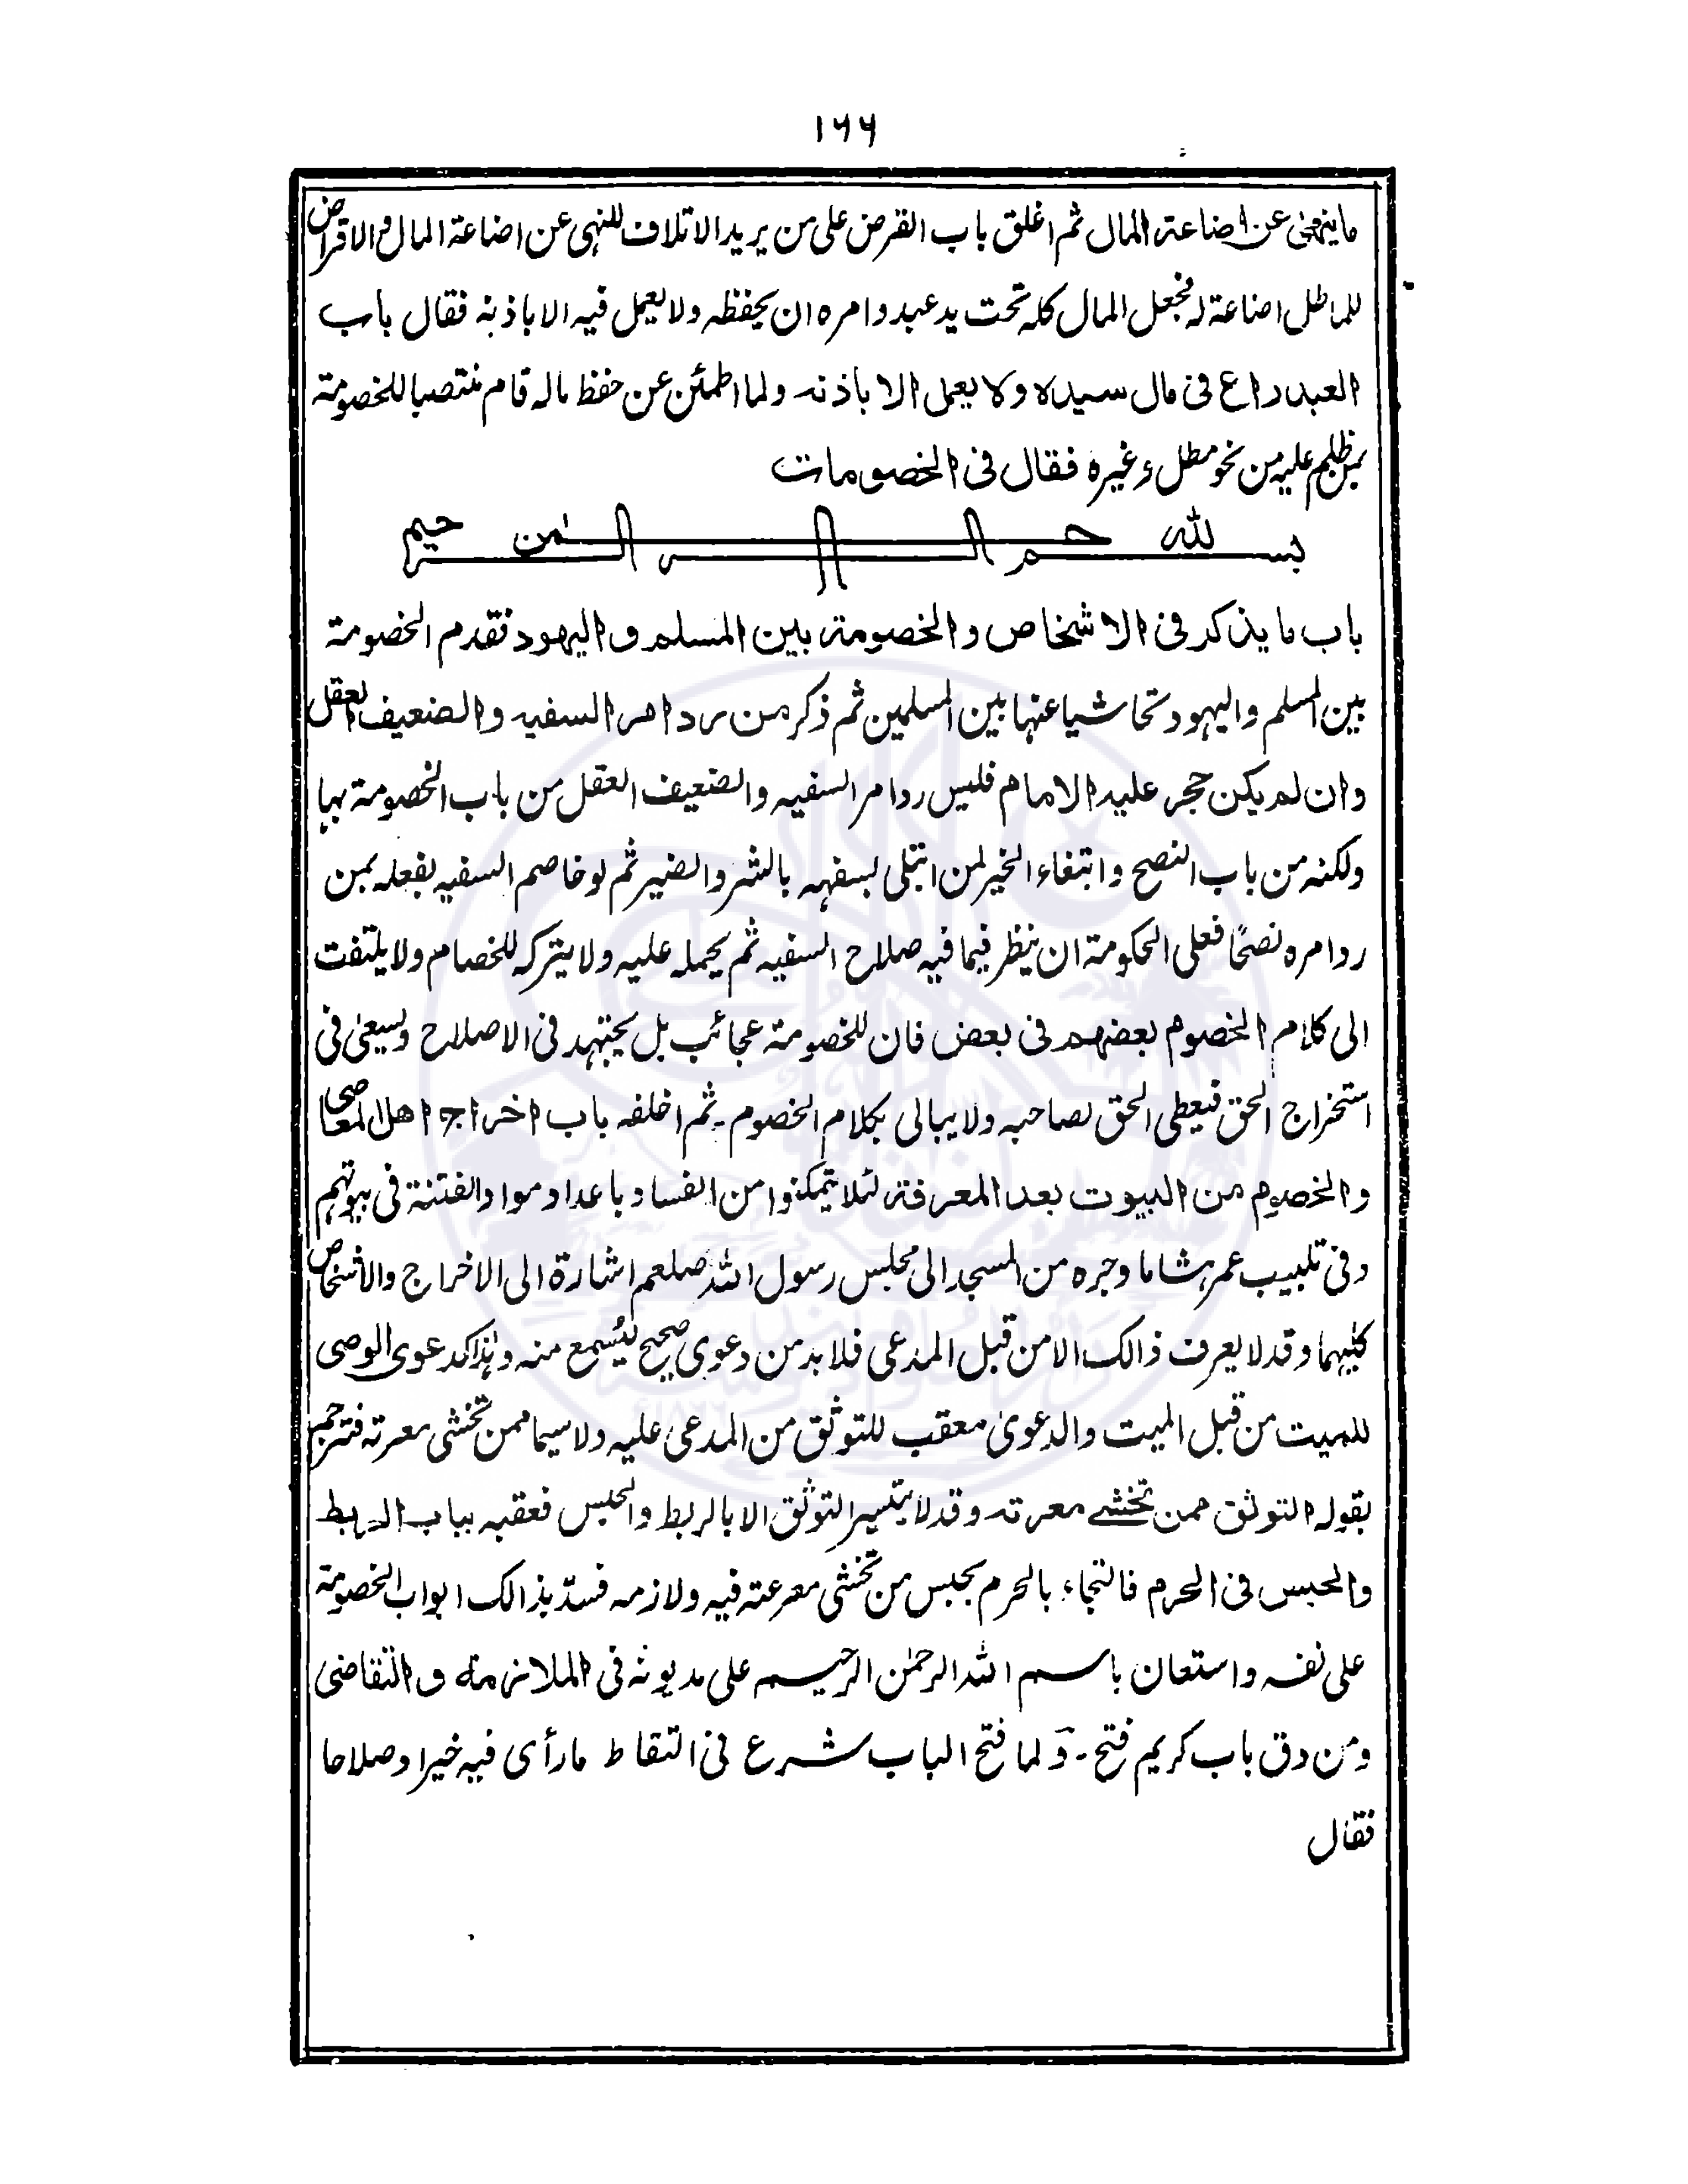 ١٦٦
ما ينهى عن اضاعة المال ثم اغلق باب القرض على من يريد الاتلاف للنهى عن اضاعة المال والاقراض
للماطل اضاعة له فجعل المال كله تحت يد عبد وامره ان يحفظه ولا يعمل فيه الا باذنه فقال باب
العبد راع فى مال سيده ولا يعمل الا باذنه ولما اطمئن عن حفظ ماله قام منتصبا للخصومة
بمن ظلم عليه من نحو مطل وغيره فقال فى الخصومات
بسم الله الرحمن الرحيم
باب ما يذكر فى الاشخاص والخصومة بين المسلم و اليهود فقدم الخصومة
بين المسلم واليهود تحاشيا عنها بين المسلمين ثم ذكر من رد امر السفيه والضعيف العقل
وان لم يكن حجر عليه الامام فليس رد امر السفيه والضعيف العقل من باب الخصومة بها
ولكنه من باب النصح وابتغاء الخير لمن ابتلى بسفهه بالشر والضير ثم لو خاصم السفيه بفعله بمن
رد امره نصحًا فعلى الحكومة ان ينظر فيما فيه صلاح السفيه ثم يحمله عليه ولا يتركه للخصام ولا يلتفت
الى كلام الخصوم بعضهم فى بعض فان للخصومة عجائب بل يجتهد فى الاصلاح ويسعىٰ فى
استخراج الحق فيعطى الحق لصاحبه ولا يبالى بكلام الخصوم ـ ثم اخلفه باب اخراج اهل المعاصى
والخصوم من البيوت بعد المعرفة لئلا يتمكنوا من الفساد باعداد مواد الفتنة فى بيوتهم
وفى تلبيب عمر هشاما وجره من المسجد الى مجلس رسول الله صلعم اشارة الى الاخراج والاشخاص
كليهما وقد لا يعرف ذالك الا من قبل المدعى فلا بد من دعوى صحيح ليُسمع منه وهٰذا كدعوى الوصى
للميت من قبل الميت والدعوىٰ معقب للتوثق من المدعى عليه ولا سيما ممن تخشى معرته فترجم
بقوله التوثق ممن تخشى معرته وقد لا يتيسر التوثق الا بالربط والحبس فعقبه بباب الربط
والحبس فى الحرم فالتجاء بالحرم بحبس من تخشى معرعته فيه ولازمه فسدّ بذالك ابواب الخصومة
على نفسه واستعان باسم الله الرحمٰن الرحيم على مديونه فى الملازمة و التقاضى
ومن دق باب كريم فتح ـ ولما فتح الباب شرع فى التقاط ما رأى فيه خيرا وصلاحا
فقال